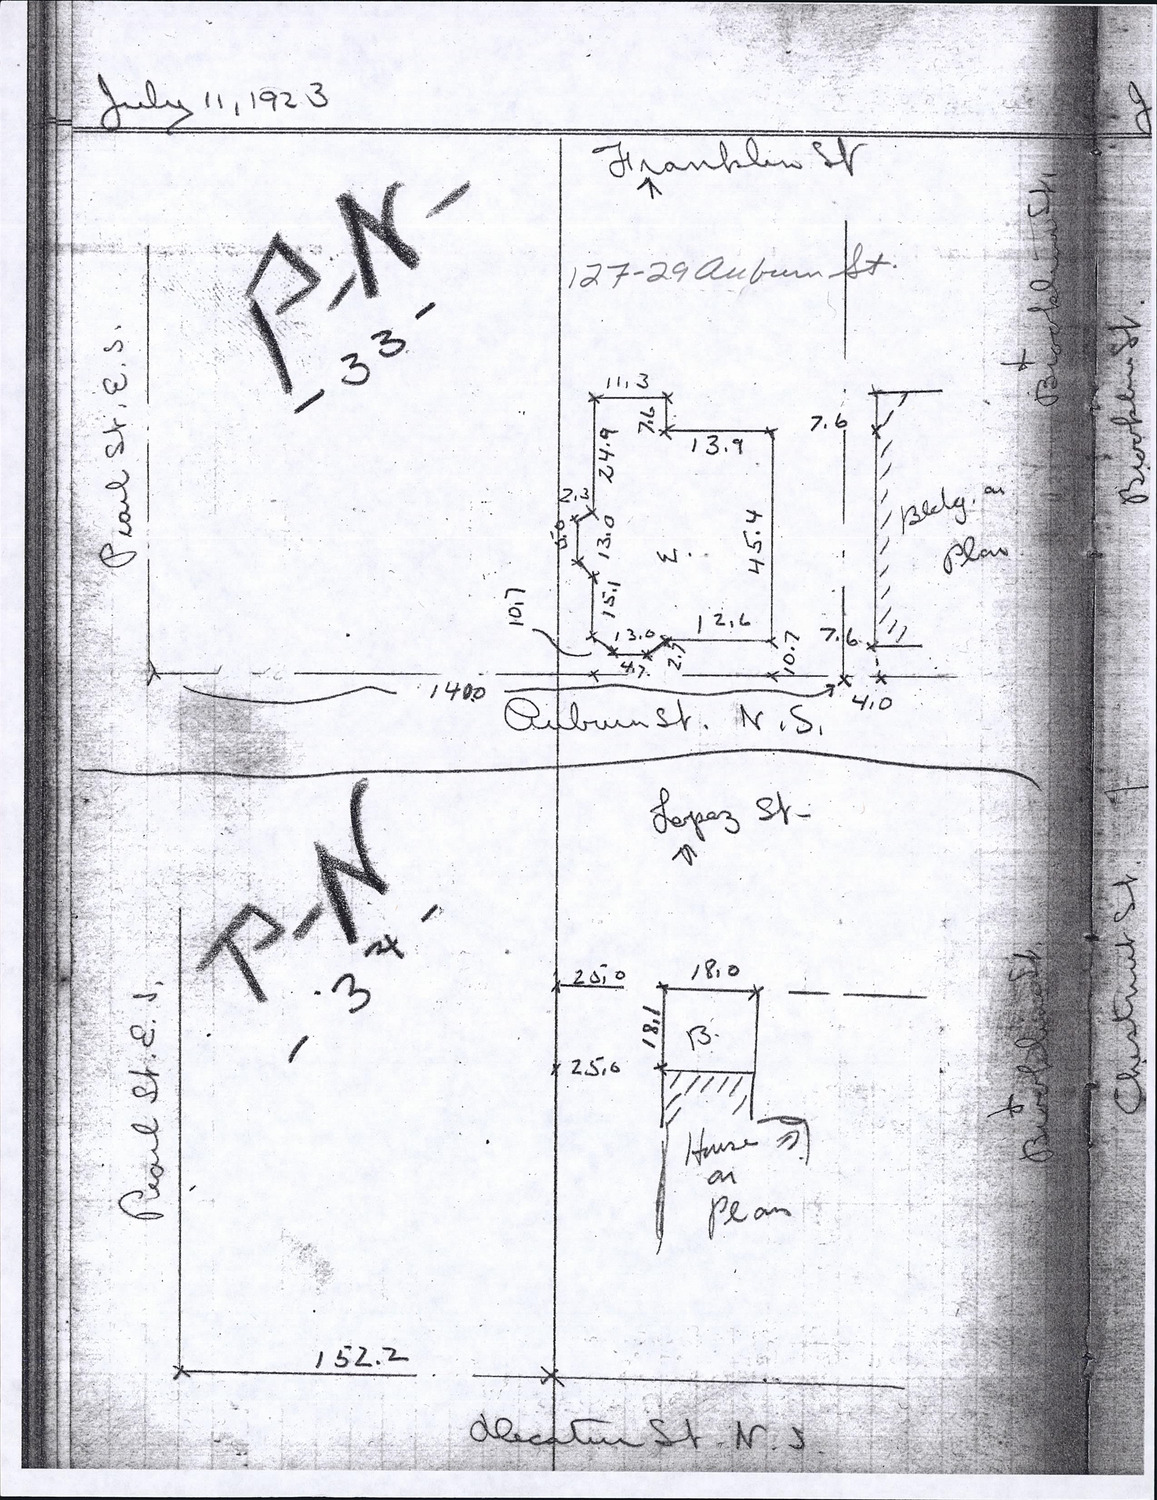 July 11, 1923
Franklin St
127-29 Auburn St.
P-N-
-33-
Pearl St. E. S.
11.3
7.6
24.9
13.9
7.6
2.3
13.0
E.
45.4
Bldg. on
Plan
10.7
15.1
13.0
12.6
4.7
2.7
10.7
7.6
140.0
4.0
Auburn St. N. S.
Brookline St.
Brookline St.
Lopez St-
P-N
-34-
Pearl St. E. S.
20.0
18.0
18.1
B.
25.0
House
on
Plan
152.2
Decatur St. N. S.
Brookline St.
Chestnut St.